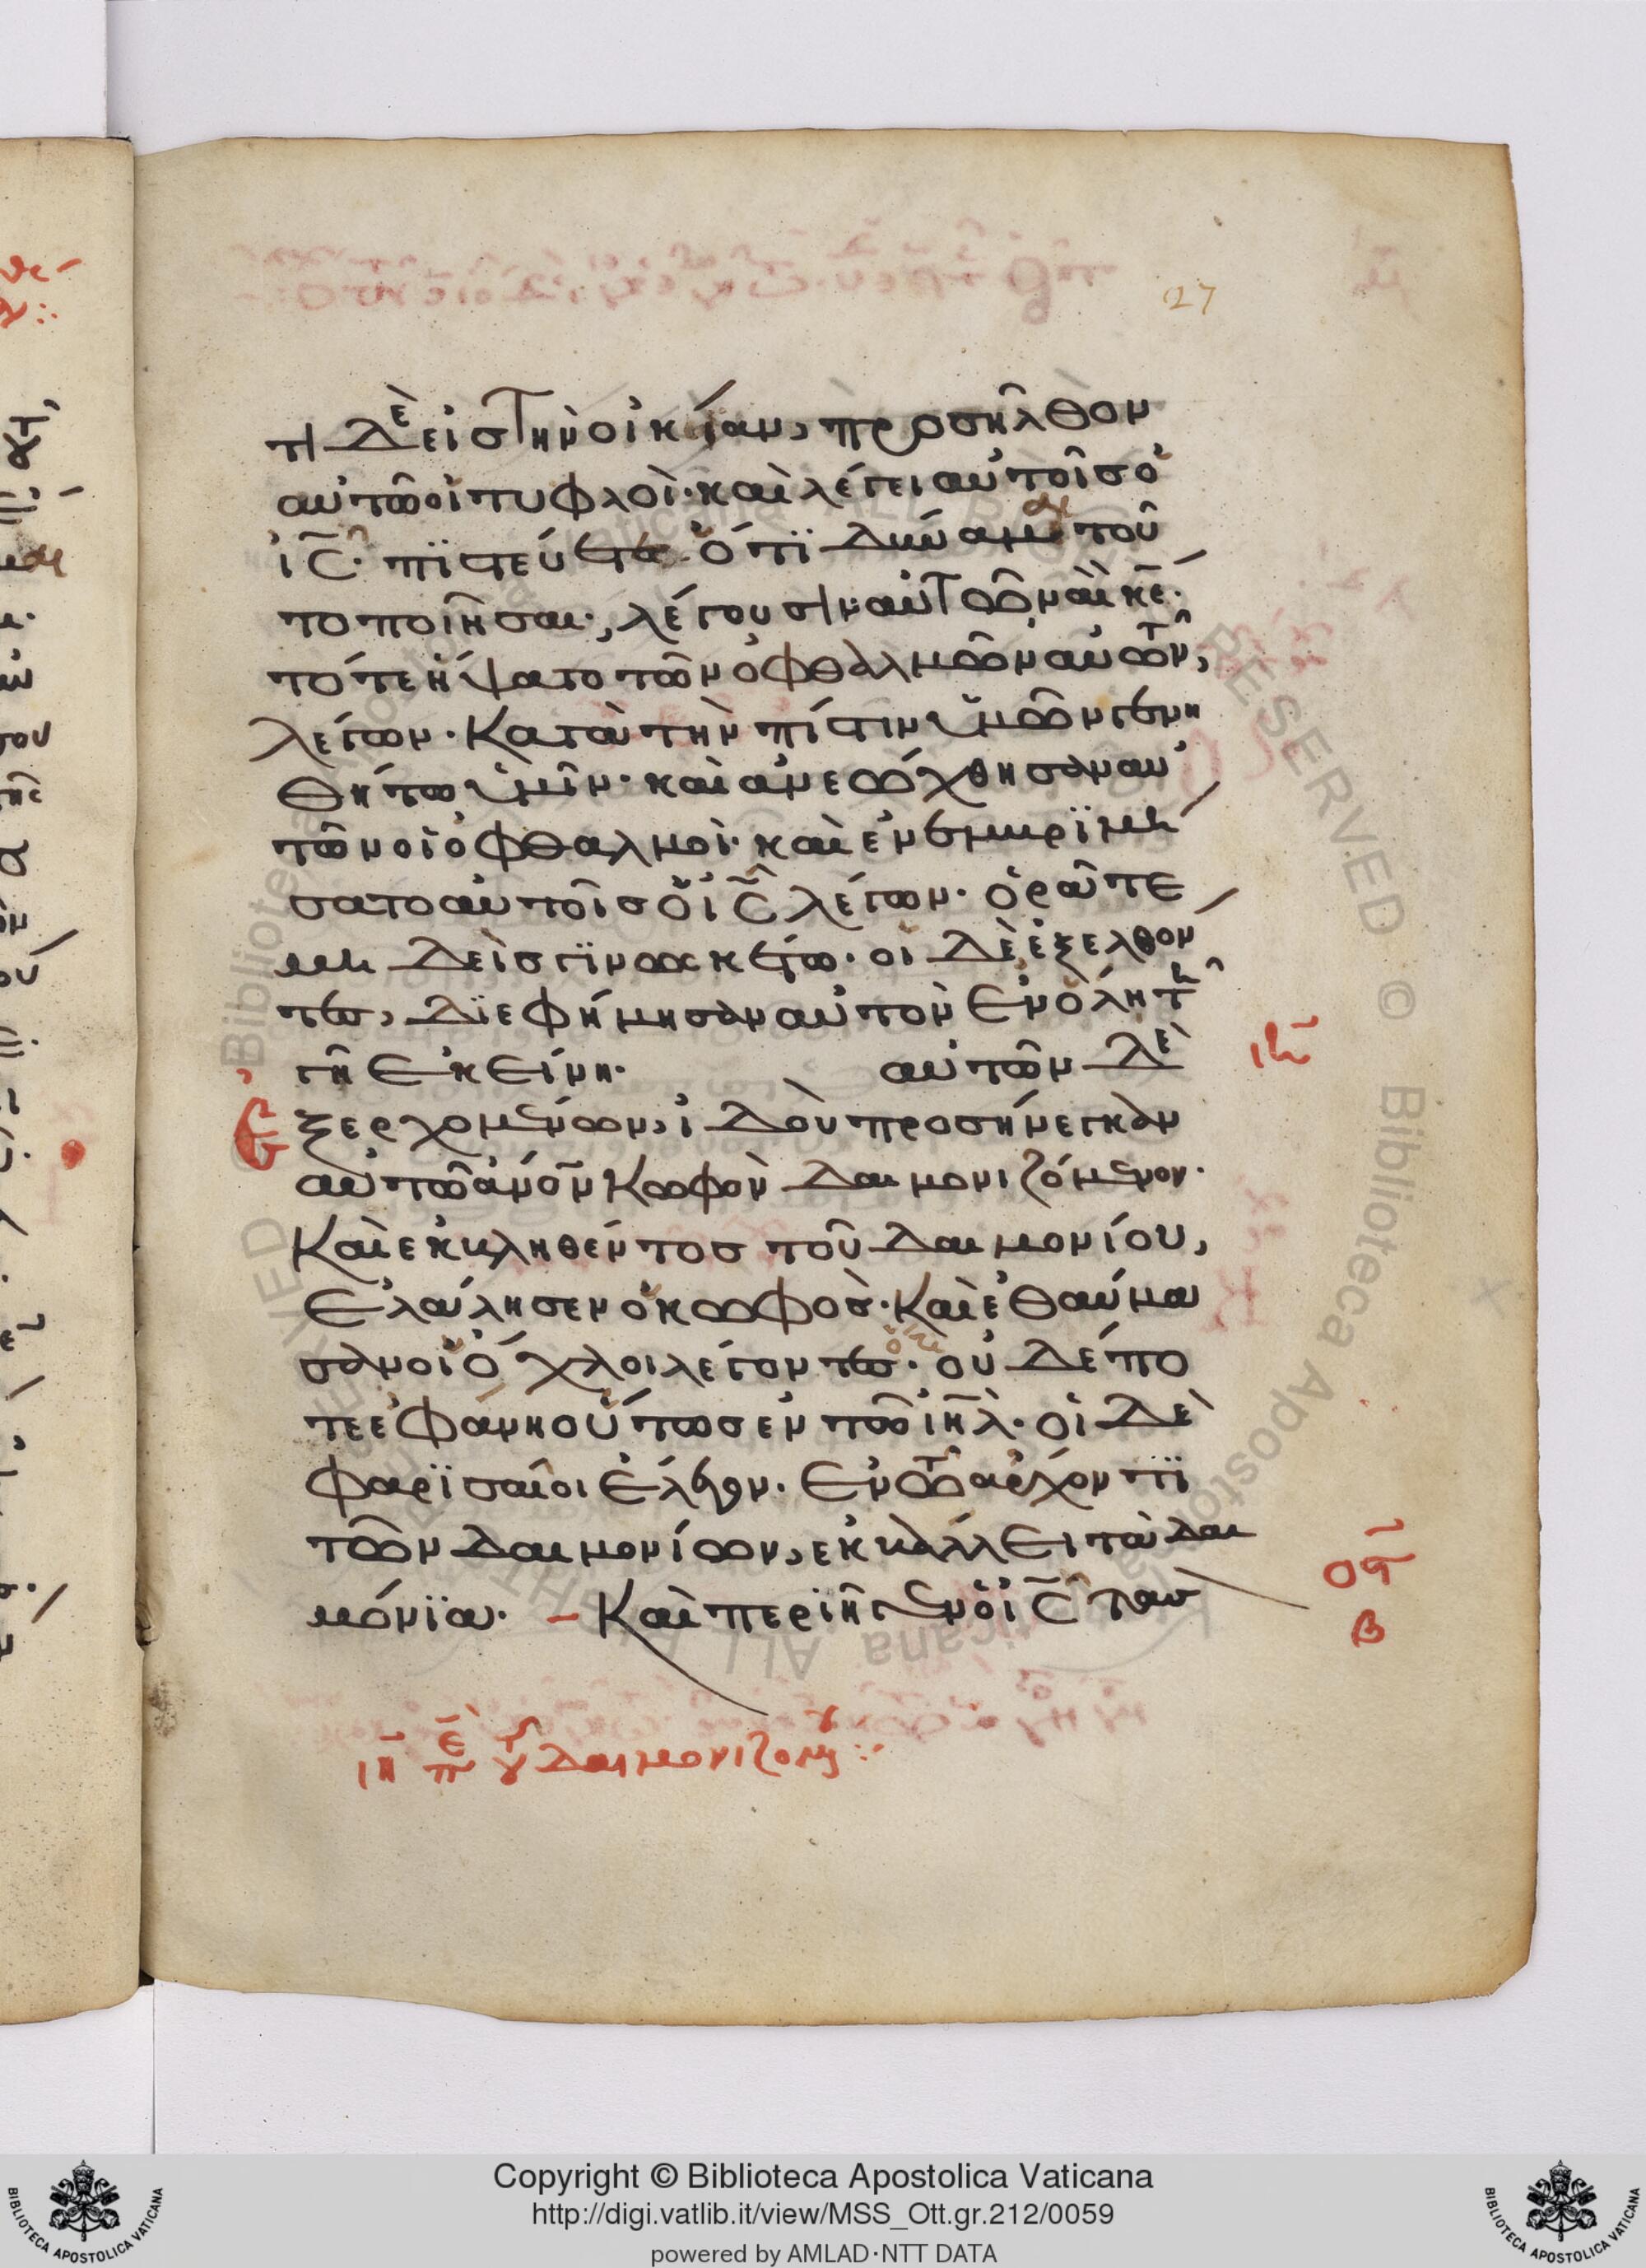 27
τι δὲ εἰς τὴν οἰκίαν, προσῆλθον
αὐτῶ οἱ τυφλοὶ· καὶ λέγει αὐτοῖς ὁ
ἰς̄· πϊστεύετε ὅτϊ δύναμαι τοῦ
το ποιῆσαι·, λέγουσιν αὐτῶ ναὶ κ̄ε·
τότε ἥψατο τῶν ὀφθαλμῶν αὐτῶν,
λέγων· Κατὰ τὴν πίστιν ὑμῶν γενη
θήτω ὑμῖν· καὶ ἀνεώχθησαν αὐ
τῶν οἱ ὀφθαλμοὶ· καὶ ἐνεβρϊμή
σατο αὐτοῖς ὁ ἰς̄ λέγων· ὁρᾶτε
μηδεὶς γϊνωσκέτω· οἱ δὲ ἐξελθόν
τες, δϊεφήμησαν αὐτὸν ἐν ὅλη τῆ
γῆ ἐκείνη· αὐτῶν δὲ
ἐξερχομένων, ἰδοὺ προσήνεγκαν
αὐτῶ ἄνο̄ν Κωφὸν δαιμονιζόμενον·
Καὶ ἐκβληθέντος τοῦ δαιμονίου,
ἐλάλησεν ὁ κωφὸς· Καὶ ἐθαύμα
σαν οἱ ὄχλοι λέγοντες· ὅτι οὐδέπο
τε ἐφάνη οὕτως ἐν τῶ ἰη̄λ· οἱ δὲ
φαρϊσαῖοι ἔλεγον· Ἐν τῶ ἄρχοντϊ
τῶν δαιμονίων, ἐκβάλλει τὰ δαι
μόνϊα· – Καὶ περιῆγεν ὁ ἰς̄ τὰς
ιη̄
οϛ̄
β
ιη̄ πε̄ τοῦ δαιμονιζομένου
Copyright © Biblioteca Apostolica Vaticana
http://digi.vatlib.it/view/MSS_Ott.gr.212/0059
powered by AMLAD·NTT DATA
BIBLIOTECA APOSTOLICA VATICANA
BIBLIOTECA APOSTOLICA VATICANA